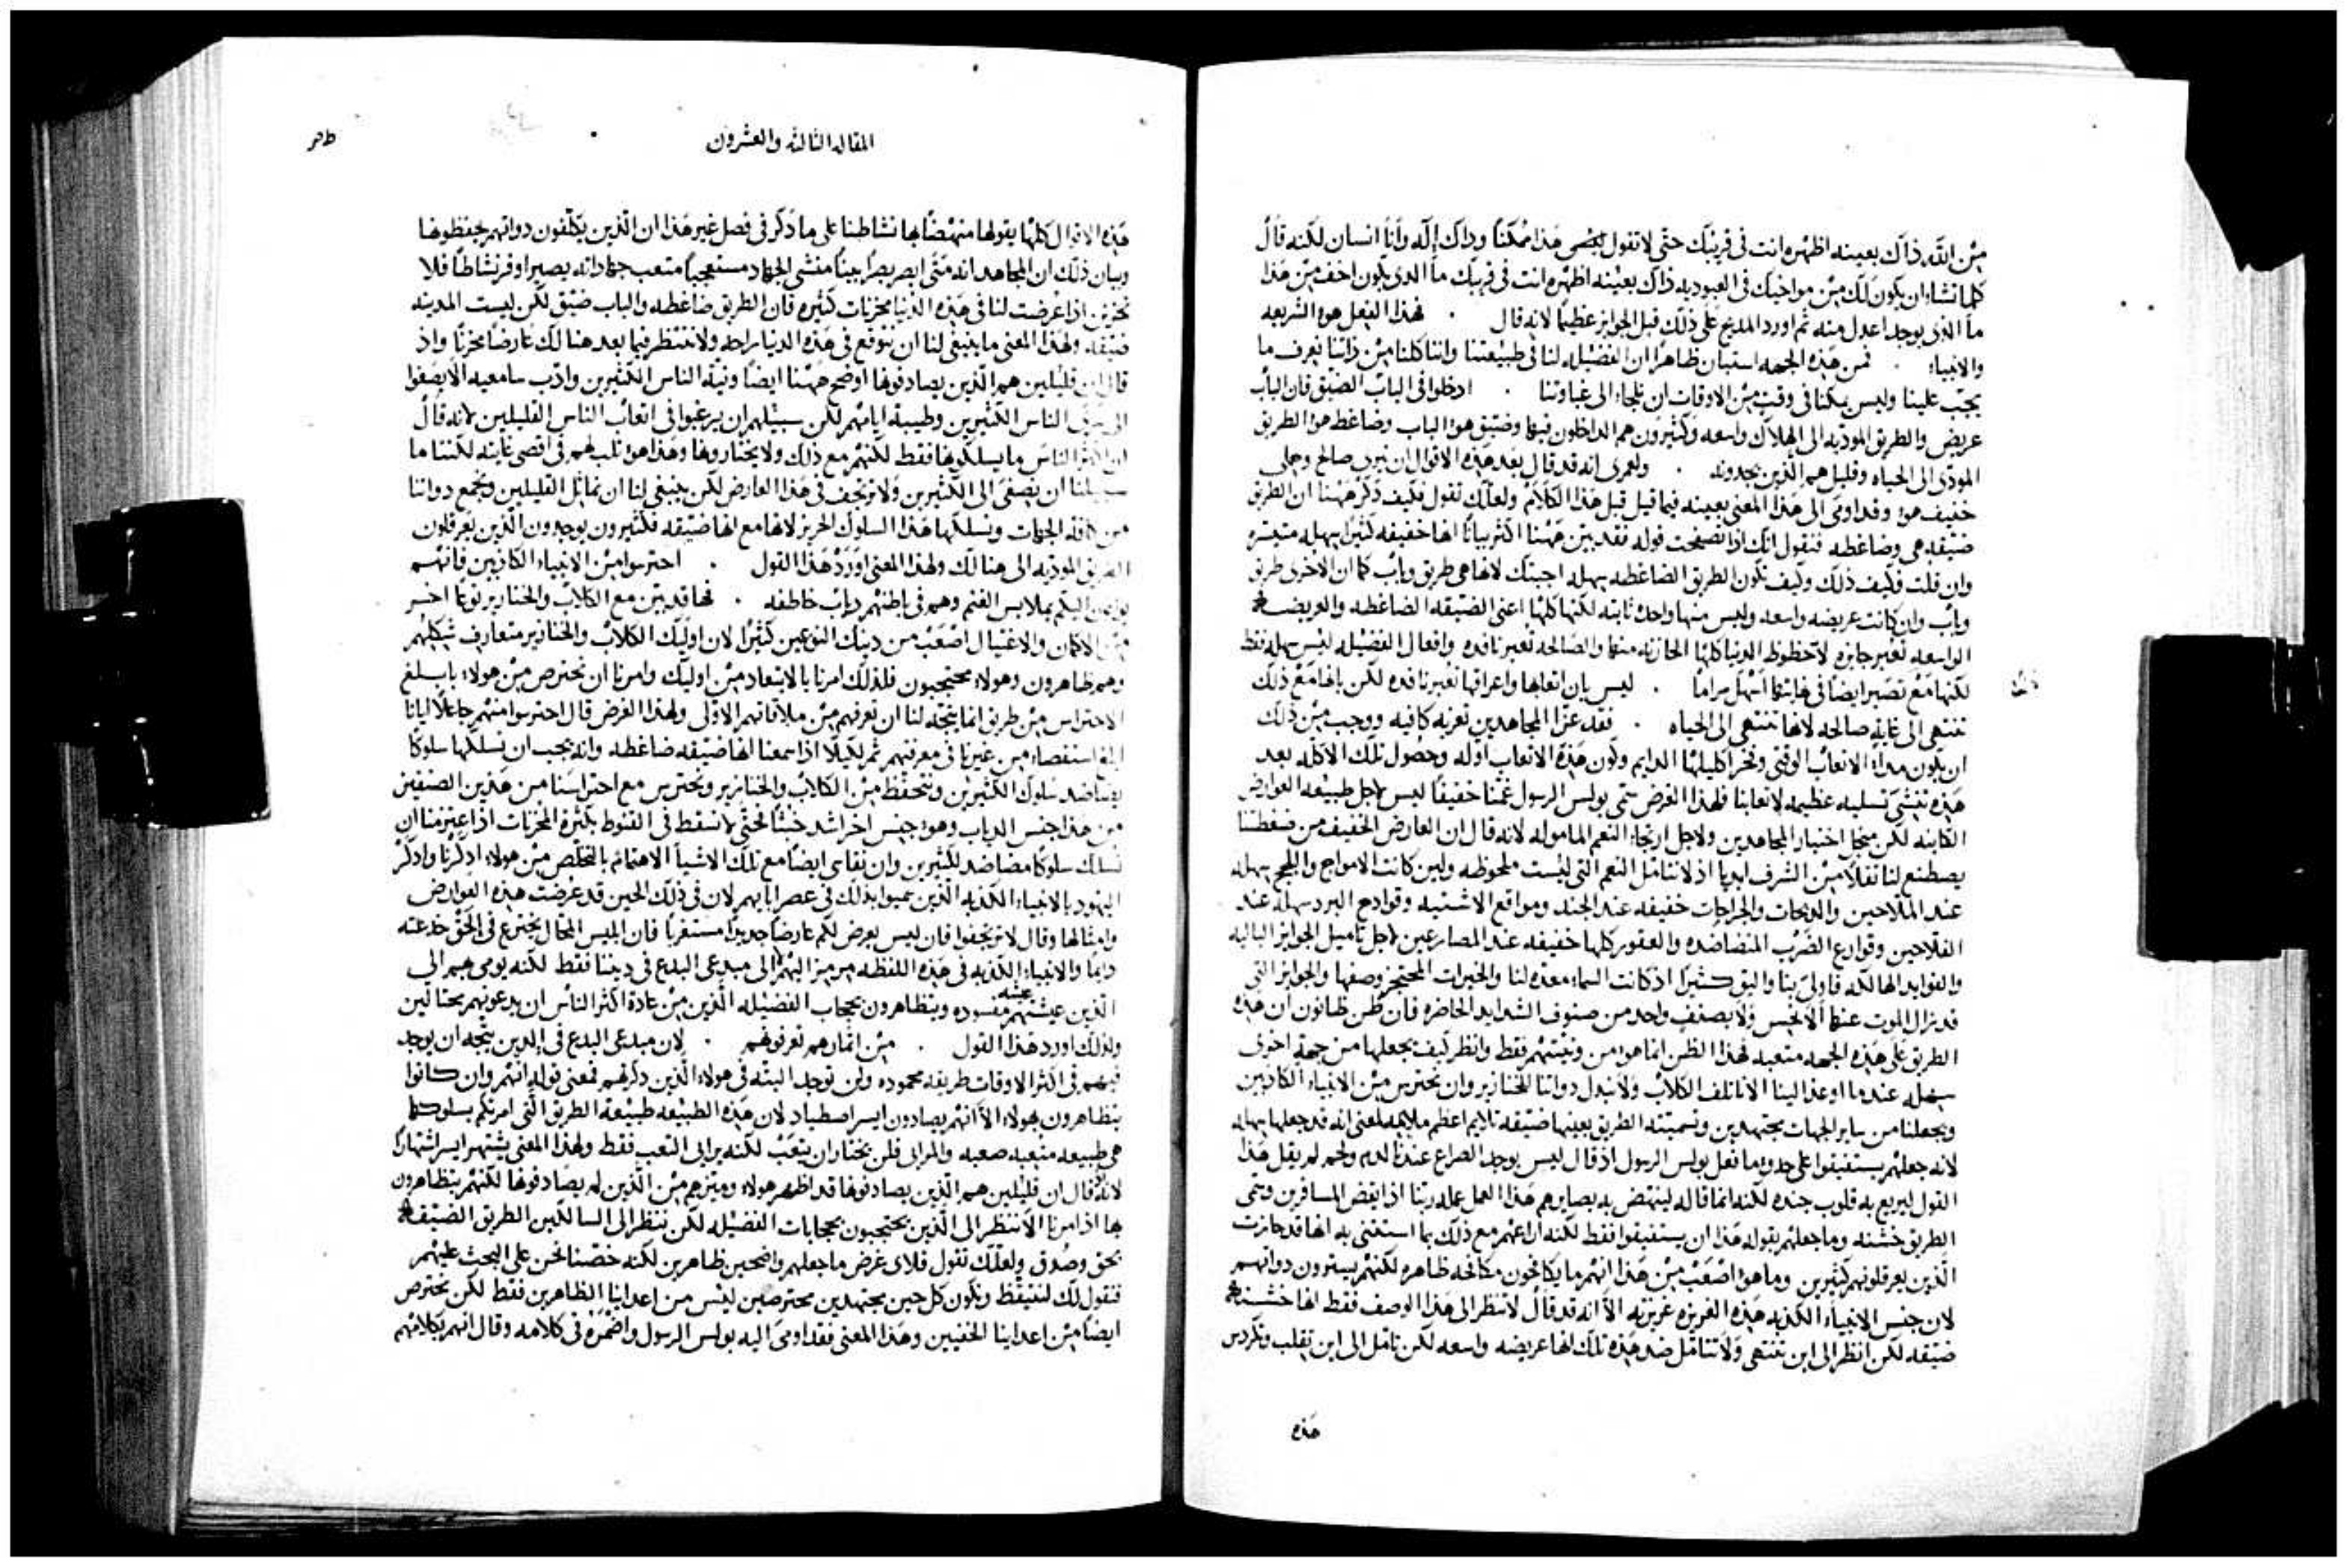 من الله ذاك بعينه اظهره انت في قريبك حتى لا تقول لجسمي هذا ممكنا وذاك إله وأنا انسان لكنه قال
كلما تشاء ان يكون لك من مواخيك في العبوديه ذاك بعينه اظهره انت في قريبك ما الذي يكون اخف من هذا
ما الذي يوجد اعدل منه ثم اورد المديح على ذلك قبل الجوايز عظيما لانه قال . فهذا الفعل هو الشريعه
والانبياء . فمن هذه الجهه استبان ظاهرا ان الفضيله لنا في طبيعتنا واننا كلنا من ذاتنا نعرف ما
يجب علينا وليس يمكنا في وقت من الاوقات ان نلجاء الى غباوتنا . ادخلوا في الباب الضيق فان الباب
عريض والطريق الموديه الى الهلاك واسعه وكثيرون هم الداخلون فيها وضيق هو الباب وضاغط هو الطريق
المودي الى الحياه وقليل هم الذين يجدونه . ولعمري انه قد قال بعد هذه الاقوال ان نيري صالح وحملي
خفيف هو وقد اومى الى هذا المعنى بعينه فيما قيل قبل هذا الكلام ولعلك تقول فكيف ذكر ههنا ان الطريق
ضيقه هي وضاغطه فنقول انك اذا تصفحت قوله فقد بين ههنا اكثر بيانا انها خفيفه كثيرا سهله متيسره
وان قلت فكيف ذلك وكيف تكون الطريق الضاغطه سهله اجبتك لانها هي طريق وباب كما ان الاخرى طريق
وباب وان كانت عريضه واسعه وليس منها واحده ثابته لكنها كلها اعني الضيقه الضاغطه والعريضه
الواسعه تعبر جايزه لان حظوظ الدنيا كلها الحازنه منها والصالحه تعبر نافده وافعال الفضيله ليس سهله فقط
لكنها مع تصير ايضا في غايتها اسهل مراما . ليس بان اتعابها واعراقها تعبر نافده لكن بانها مع ذلك
تنتهي الى غاية صالحه لانها تنتهي الى الحياه . فقد عزا المجاهدين تعزيه كافيه ووجب من ذلك
ان يكون مدا الاتعاب الوقتي وفخر اكليلها الدايم وكون هذه الاتعاب اوله وحصول تلك الاكله بعد
هذه تنشي تسليه عظيمه لاتعابنا فلهذا الغرض سمى بولس الرسول غمنا خفيفا ليس لاجل طبيعه العوارض
الكاينه لكن من اجل اختيار المجاهدين ولاجل ارتجاء النعم الماموله لانه قال ان العارض الخفيف من ضغطتنا
يصطنع لنا ثقلا من الشرف ابديا اذ لا نتامل النعم التي ليست ملحوظه ولين كانت الامواج واللجج سهله
عند الملاحين والذبحات والجراحات خفيفه عند الجند ومواقع الاشتيه وقوادح البرد سهله عند
الفلاحين وقوارع الضرب المتضاضده والعقور كلها خفيفه عند المصارعين لاجل تاميل الجوايز الباليه
والفوايد الهالكه فاولى بنا واليق كثيرا اذ كانت السماء معده لنا والخيرات المحتجز وصفها والجوايز التي
قد نزال الموت عنها الا نحس ولا بصنف واحد من صنوف الشدايد الحاضره فان ظن ظانون ان هذه
الطريق على هذه الجهه متعبه فهذا الظن انما هو من ونيتهم فقط وانظر كيف يجعلها من جهة اخرى
سهله عندما اوعذ الينا الا نالف الكلاب ولا نبذل ذواتنا للخنازير وان نحترس من الانبياء الكاذبين
ويجعلنا من ساير الجهات مجتهدين وتسميته الطريق بعينها ضيقه تلايم اعظم ملايمه لمعنى انه قد جعلها سهله
لانه جعلهم يستفيقوا على حذو ما فعل بولس الرسول اذ قال ليس يوجد الصراع عندنا لدم ولحم لم يقل هذا
القول ليريع به قلوب جنده لكنه انما قاله لينتهض به بصايرهم هذا العمل عمله ربنا اذ ايقض المسافرين وسمى
الطريق خشنه وما جعلهم بقوله هذا ان يستفيقوا فقط لكنه اراعهم مع ذلك بما استغنى به انها قد حازت
الذين يعرقلونهم كثيرين وما هو اصعب من هذا انهم ما يكافحون مكافحه ظاهره لكنهم يسترون دواتهم
لان جنس الانبياء الكذبه هذه الغريزه غريزته الا انه قد قال لا تنظر الى هذا الوصف فقط انها خشنه
ضيقه لكن انظر الى اين تنتهي ولا تتامل ضد هذه تلك انها عريضه واسعه لكن تامل الى اين تقلب وتكردس
هذه
المقاله الثالثه والعشرون
هذه الاقوال كلها يقولها منهضا بها نشاطنا على ما ذكر في فصل غير هذا ان الذين يكلفون دواتهم يختطفونها
وبيان ذلك ان المجاهد انه متى ابصر بصرا بينا منشي الجهاد مستعجبا متعب جهاداته يصير اوفر نشاطا فلا
نحزن اذا عرضت لنا في هذه الدنيا محزنات كثيره فان الطريق ضاغطه والباب ضيق لكن ليست المدينه
ضيقه ولهذا المعنى ما ينبغي لنا ان نتوقع في هذه الدنيا راحه ولا ننتظر فيما بعد هنالك عارضا محزنا واذ
قال ان قليلين هم الذين يصادفونها اوضح ههنا ايضا ونية الناس الكثيرين وادب سامعيه الا يصغوا
الى الناس الكثيرين وطيبة ايامهم لكن سبيلهم ان يرغبوا في اتعاب الناس القليلين لانه قال
ان اكثر الناس ما يسلكونها فقط لكنهم مع ذلك ولا يختاروها وهذا هو ثلب لهم في اقصى غايته لكننا ما
سبيلنا ان نصغي الى الكثيرين ولا نرتجف في هذا العارض لكن ينبغي لنا ان نماثل القليلين ونجمع دواتنا
من كافة الجهات ونسلكها هذا السلوك الحريز لانها مع انها ضيقه فكثيرون يوجدون الذين يعرقلون
الطريق الموديه الى هنالك ولهذا المعنى اورد هذا القول . احترسوا من الانبياء الكاذبين فانهم
يوافون اليكم بملابس الغنم وهم في باطنهم دياب خاطفه . فها قد بين مع الكلاب والخنازير نوعا اخر
من الاكمان والاغتيال اصعب من دينك النوعين كثيرا لان اوليك الكلاب والخنازير متعارف شكلهم
وهم ظاهرون وهولاء محتجبون فلذلك امرنا بالابتعاد من اوليك وامرنا ان نحترص من هولاء بابلغ
الاحتراس من طريق انما يتجه لنا ان نعرفهم من ملاقاتهم الاولى ولهذا الغرض قال احترسوا منهم جاعلا ايانا
ابلغ استقصاء من غيرنا في معرفتهم ثم لكيلا اذا سمعنا انها ضيقه ضاغطه وانه يجب ان نسلكها سلوكا
يضاضد سلوك الكثيرين ونتحفظ من الكلاب والخنازير ونحترس مع احتراسنا من هذين الصنفين
من هذا جنس الدياب وهو جنس اخر اشد خبثا لحتى لا نسقط في القنوط بكثرة المحزنات اذا اعتزمنا ان
نسلك سلوكا مضاضد للكثيرين وان نقاسي ايضا مع تلك الاشيا الاهتمام بالتخلص من هولاء اذكرنا واذكر
اليهود بالانبياء الكذبه الذين سميوا بذلك في عصر ابايهم لان في ذلك الحين قد عرضت هذه العوارض
وامثالها وقال لا ترتجفوا فان ليس يعرض لكم عارضا جديدا مستغربا فان ابليس المحال يخترع في الحق خدعته
دايما والانبياء الكذبه في هذه اللفظه الى مبدعي البدع في ديننا فقط لكنه يومي بهم الى
الذين عيشتهم مفسوده ويتظاهرون بحجاب الفضيله الذين من عادة اكثر الناس ان يدعونهم محتالين
ولذلك اورد هذا القول . من اثمارهم تعرفونهم . لان مبدعي البدع في الدين يتجه ان يوجد
فيهم في اكثر الاوقات طريقه محموده ولن توجد البته في هولاء الذين ذكرتهم فمعنى قوله انهم وان كانوا
يتظاهرون بهولاء الا انهم يصادون ايسر اصطياد لان هذه الطبيعه طبيعة الطريق التي امرتكم بسلوكها
هي طبيعه متعبه صعبه والمرايي فلن يختار ان يتعب لكنه يرايي التعب فقط ولهذا المعنى يشتهر ايسر اشتهارا
لانه قال ان قليلين هم الذين يصادفونها قد اظهر هولاء وميزهم من الذين لم يصادفوها لكنهم يتظاهرون
بها اذ امرنا الا ننظر الى الذين يحتجبون بحجابات الفضيله لكن ننظر الى السالكين الطريق الضيقه
بحق وصدق ولعلك تقول فلاي غرض ما جعلهم واضحين ظاهرين لكنه خصنا نحن على البحث عليهم
فنقول لك لنتيقظ ونكون كل حين مجتهدين محترصين ليس من اعداينا الظاهرين فقط لكن نحترص
ايضا من اعداينا الخفيين وهذا المعنى فقد اومى اليه بولس الرسول واضمره في كلامه وقال انهم بكلامهم